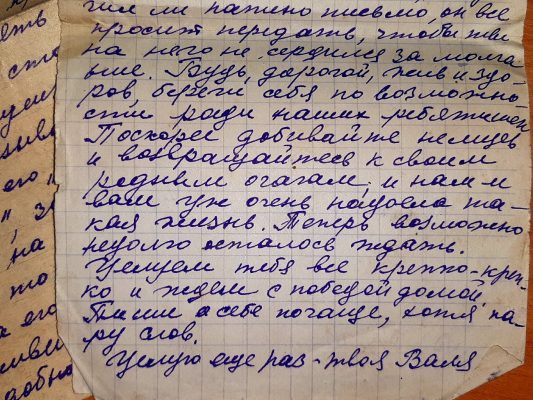 ли нажино письмо, он все
просит передать, чтобы ты
на него не сердился за молча-
ние. Будь, дорогой, жив и здо-
ров, береги себя по возможно-
сти ради наших ребятишек
Поскорее добивайте немцев
и возвращайтесь к своим
родным очагам, и нам и
вам уж очень надоела та-
кая жизнь. Теперь возможно
недолго осталось ждать.
Целуем тебя все крепко-креп-
ко и ждем с победой домой.
Пиши о себе почаще, хотя па-
ру слов.
Целую еще раз - твоя Валя
еть
сто
его
"
на
то
а его
добно